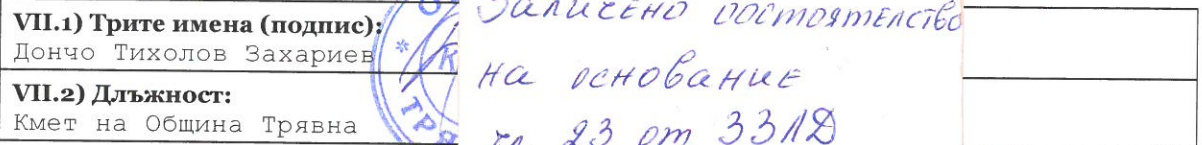 VII.1) Трите имена (подпис):
Дончо Тихолов Захариев
VII.2) Длъжност:
Кмет на Община Трявна
Заличено обстоятелство
на основание
чл 23 от ЗЗЛД